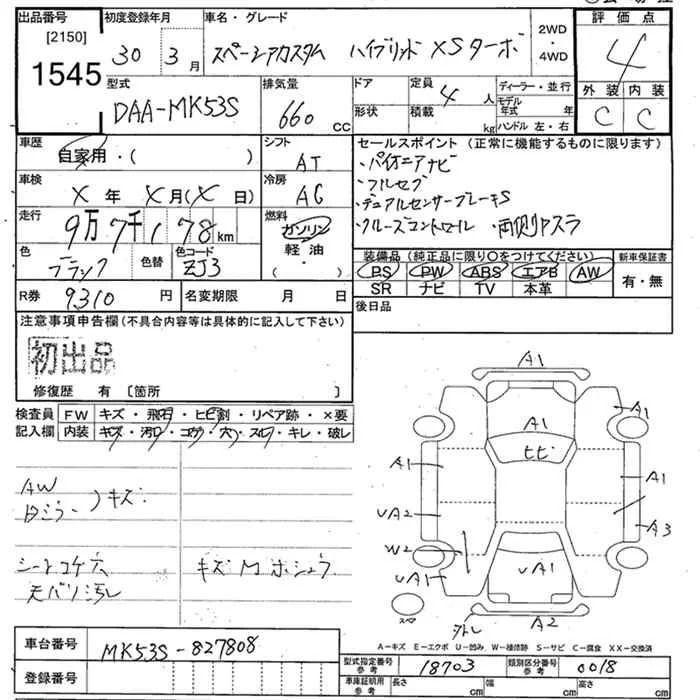 出品番号 初度登録年月 車名・グレード 2WD・4WD 評価点
[2150]
1545
30 3月 スペーシアカスタム ハイブリッド XSターボ 4
型式 排気量 ドア 定員 ディーラー・並行 外装 内装
DAA-MK53S 660 CC 4人 モデル年式 年 C C
形状 積載 kg ハンドル 左・右
車歴 シフト セールスポイント(正常に機能するものに限ります)
自家用・( ) AT ・パイオニアナビ
車検 冷房 ・フルセブ
X 年 X 月(X 日) AC ・デュアルセンサーブレーキS
走行 燃料 ・クルーズコントロール ・両側Pスラ
9万7千178km ガソリン
軽油・
( )
色 色替 色コード 装備品(純正品に限り〇をつけてください) 新車保証書
ブラック ZJ3 PS PW ABS エアB AW 有・無
SR ナビ TV 本革
R券 9310円 名変期限 月 日 後日品
注意事項申告欄(不具合内容等は具体的に記入して下さい)
初出品
修復歴 有 〔箇所 〕
検査員 FW キズ・飛石・ヒビ割・リペア跡・×要
記入欄 内装 キズ・汚れ・コゲ・穴・スレ・キレ・破レ
AW
キズ
シートコゲ穴
天バリ汚レ
キズ M ホシュウ
A1
A1
A1
ヒビ
A1
A1
UA2
A3
W2
UA1
UA1
スペア
外レ
A2
A-キズ E-エクボ U-凹み W-補修跡 S-サビ C-腐食 XX-交換済
車台番号 MK53S-827808
登録番号
型式指定番号参考 18703 類別区分番号参考 0018
車庫証明用参考 長さ cm 幅 cm 高さ cm